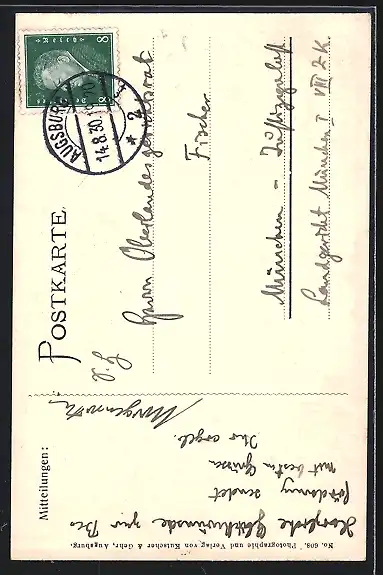 Mitteilungen:
Herzliche Glückwünsche zur Be-
förderung sendet
mit besten Grüssen
Ihr ergeb.
Morgenroth
No. 608. Photographie und Verlag von Kutscher & Gehr, Augsburg.
POSTKARTE
S. H.
Herrn Oberlandesgerichtsrat
Fischer
München - Justizpalast
Landgericht München I VIII Z K
8 8
AUGSBURG 2
14.8.30.